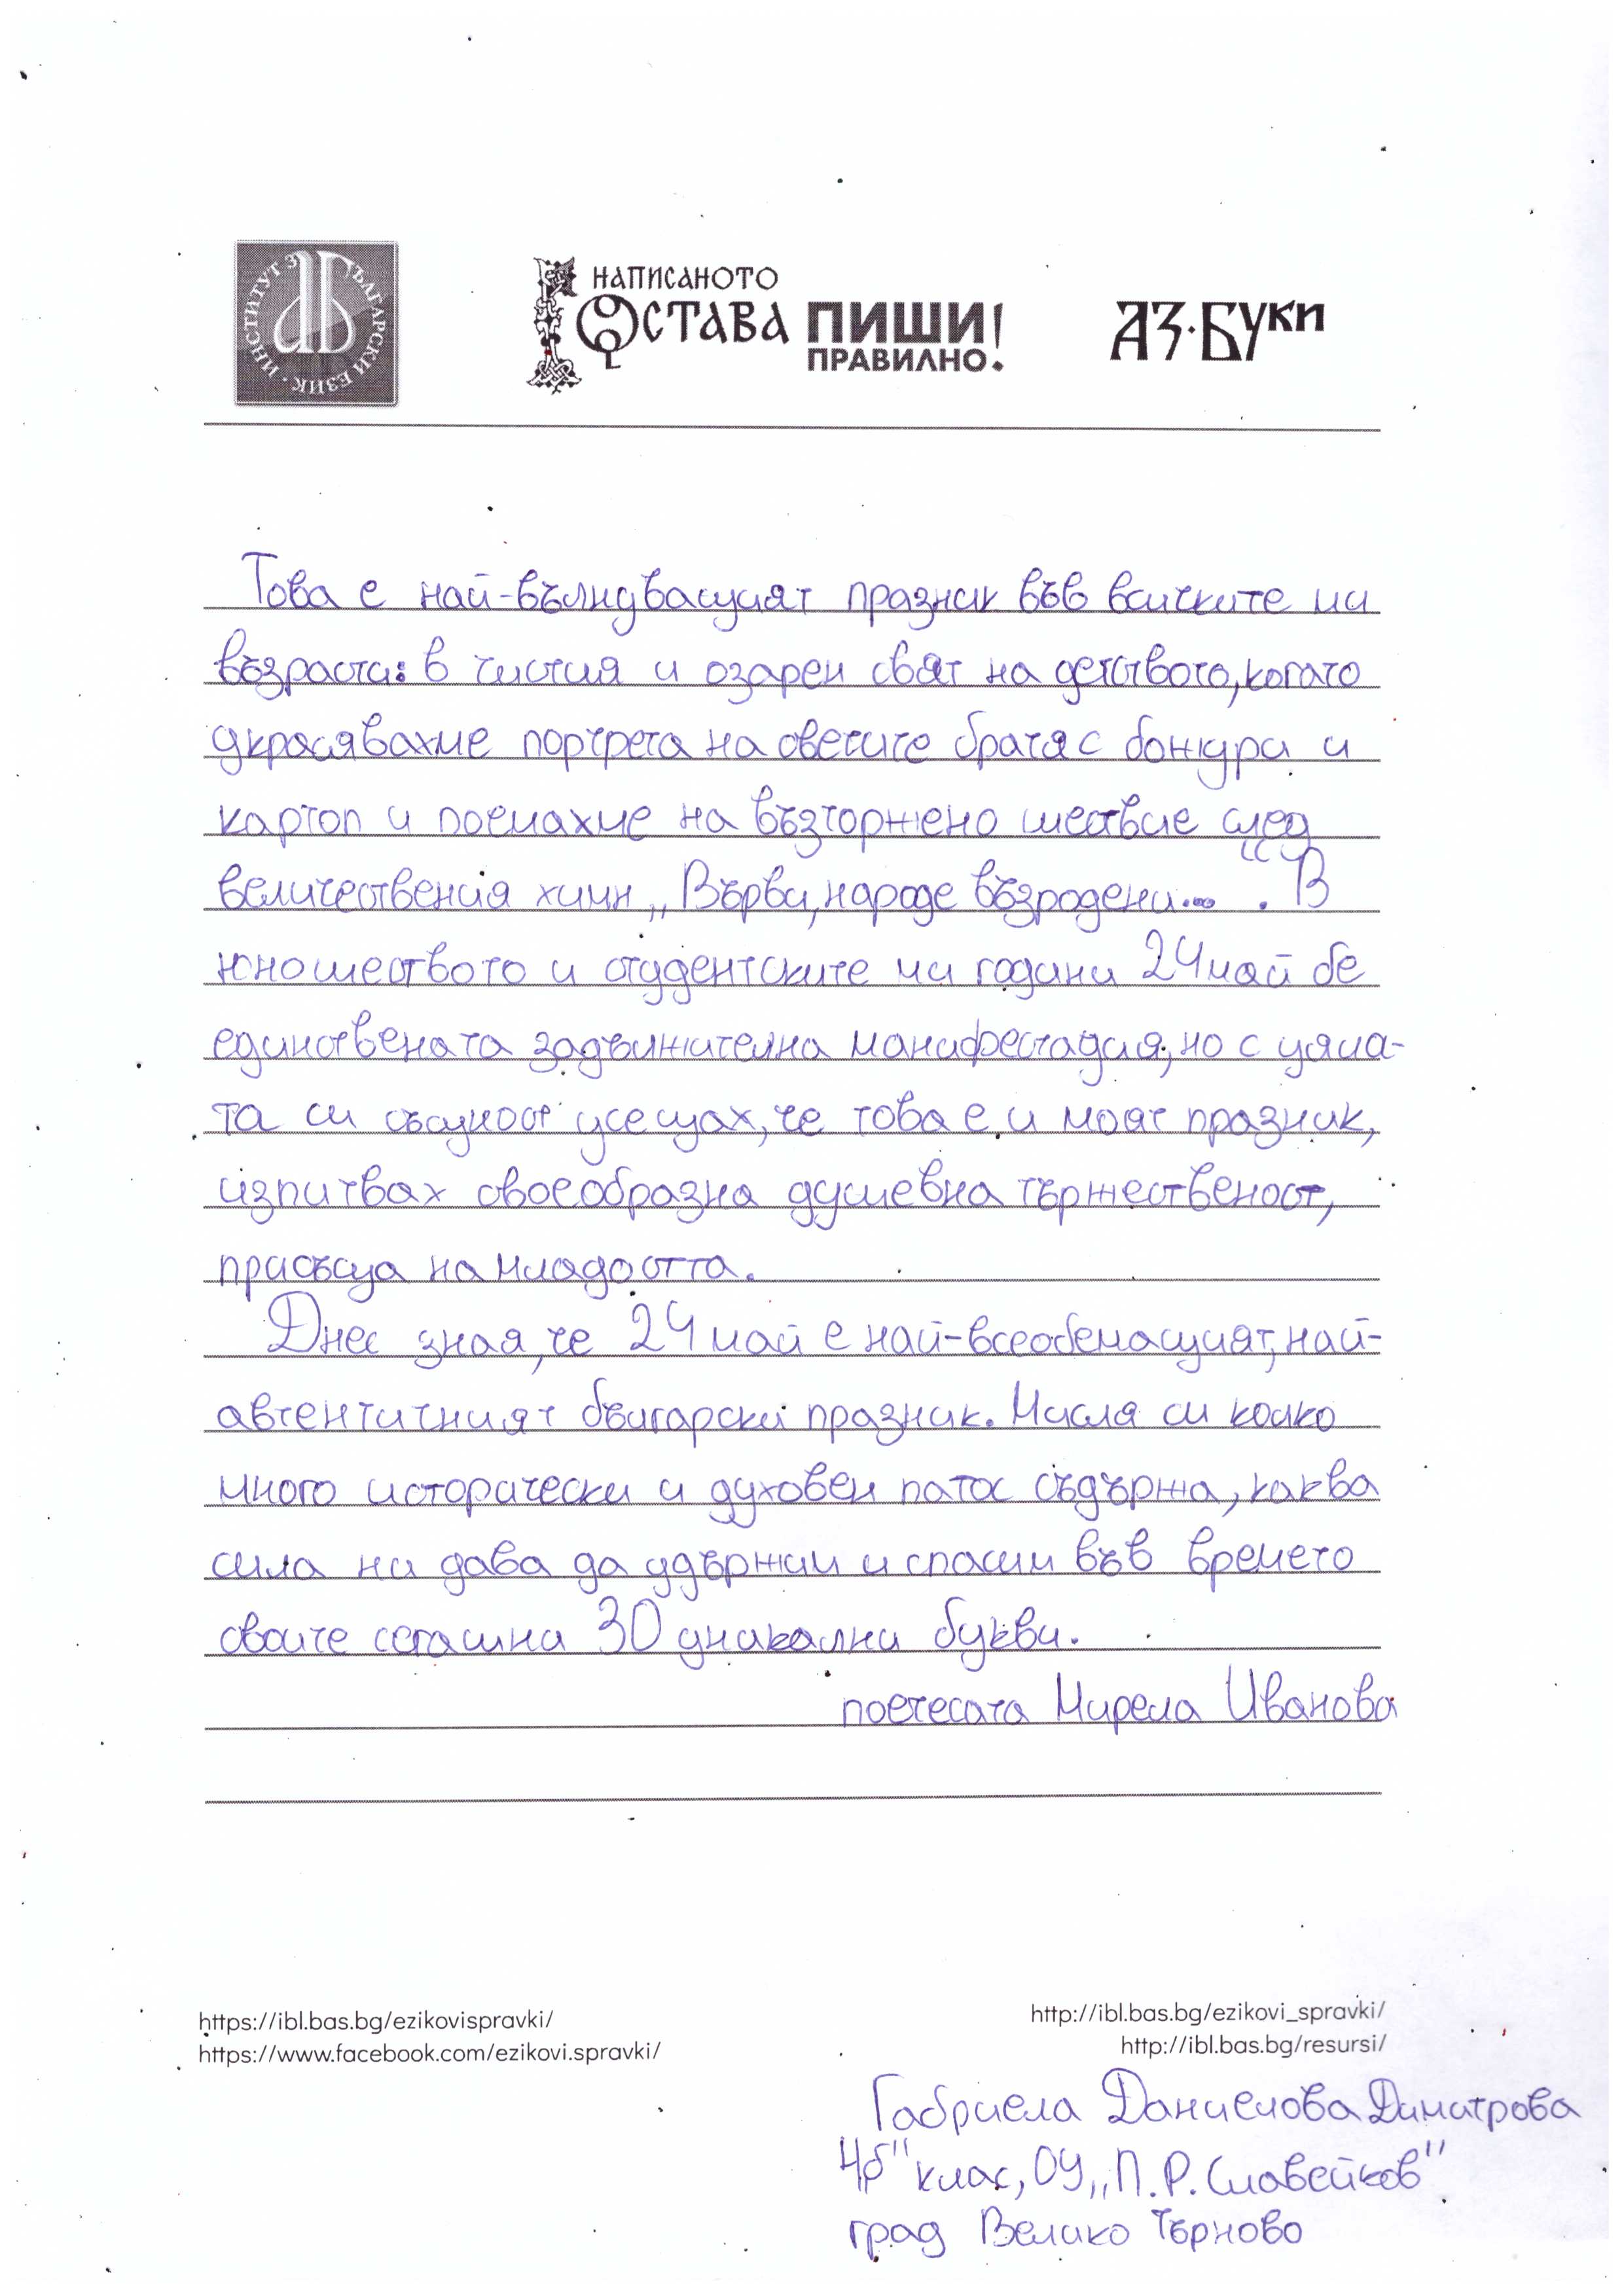 ИНСТИТУТ ЗА БЪЛГАРСКИ ЕЗИК
НАПИСАНОТО
ОСТАВА ПИШИ!
ПРАВИЛНО.
АЗ·БУКИ
Това е най-вълнуващият празник във всичките ми
възрасти: в чистия и озарен свят на детството, когато
украсявахме портрета на светите братя с божури и
картоп и поемахме на възторжено шествие след
величествения химн „Върви, народе възродени...“. В
юношеството и студентските ми години 24 май бе
единствената задължителна манифестация, но с цяла-
та си същност усещах, че това е и моят празник,
изпитвах своеобразна душевна тържественост,
присъща на младостта.
Днес зная, че 24 май е най-всеобемащият, най-
автентичният български празник. Мисля си колко
много исторически и духовен патос съдържа, каква
сила ни дава да удържим и спасим във времето
своите сегашни 30 уникални букви.
поетесата Мирела Иванова
https://ibl.bas.bg/ezikovispravki/
http://ibl.bas.bg/ezikovi_spravki/
https://www.facebook.com/ezikovi.spravki/
http://ibl.bas.bg/resursi/
Габриела Даниелова Димитрова
4„б" клас, ОУ „П. Р. Славейков"
град Велико Търново